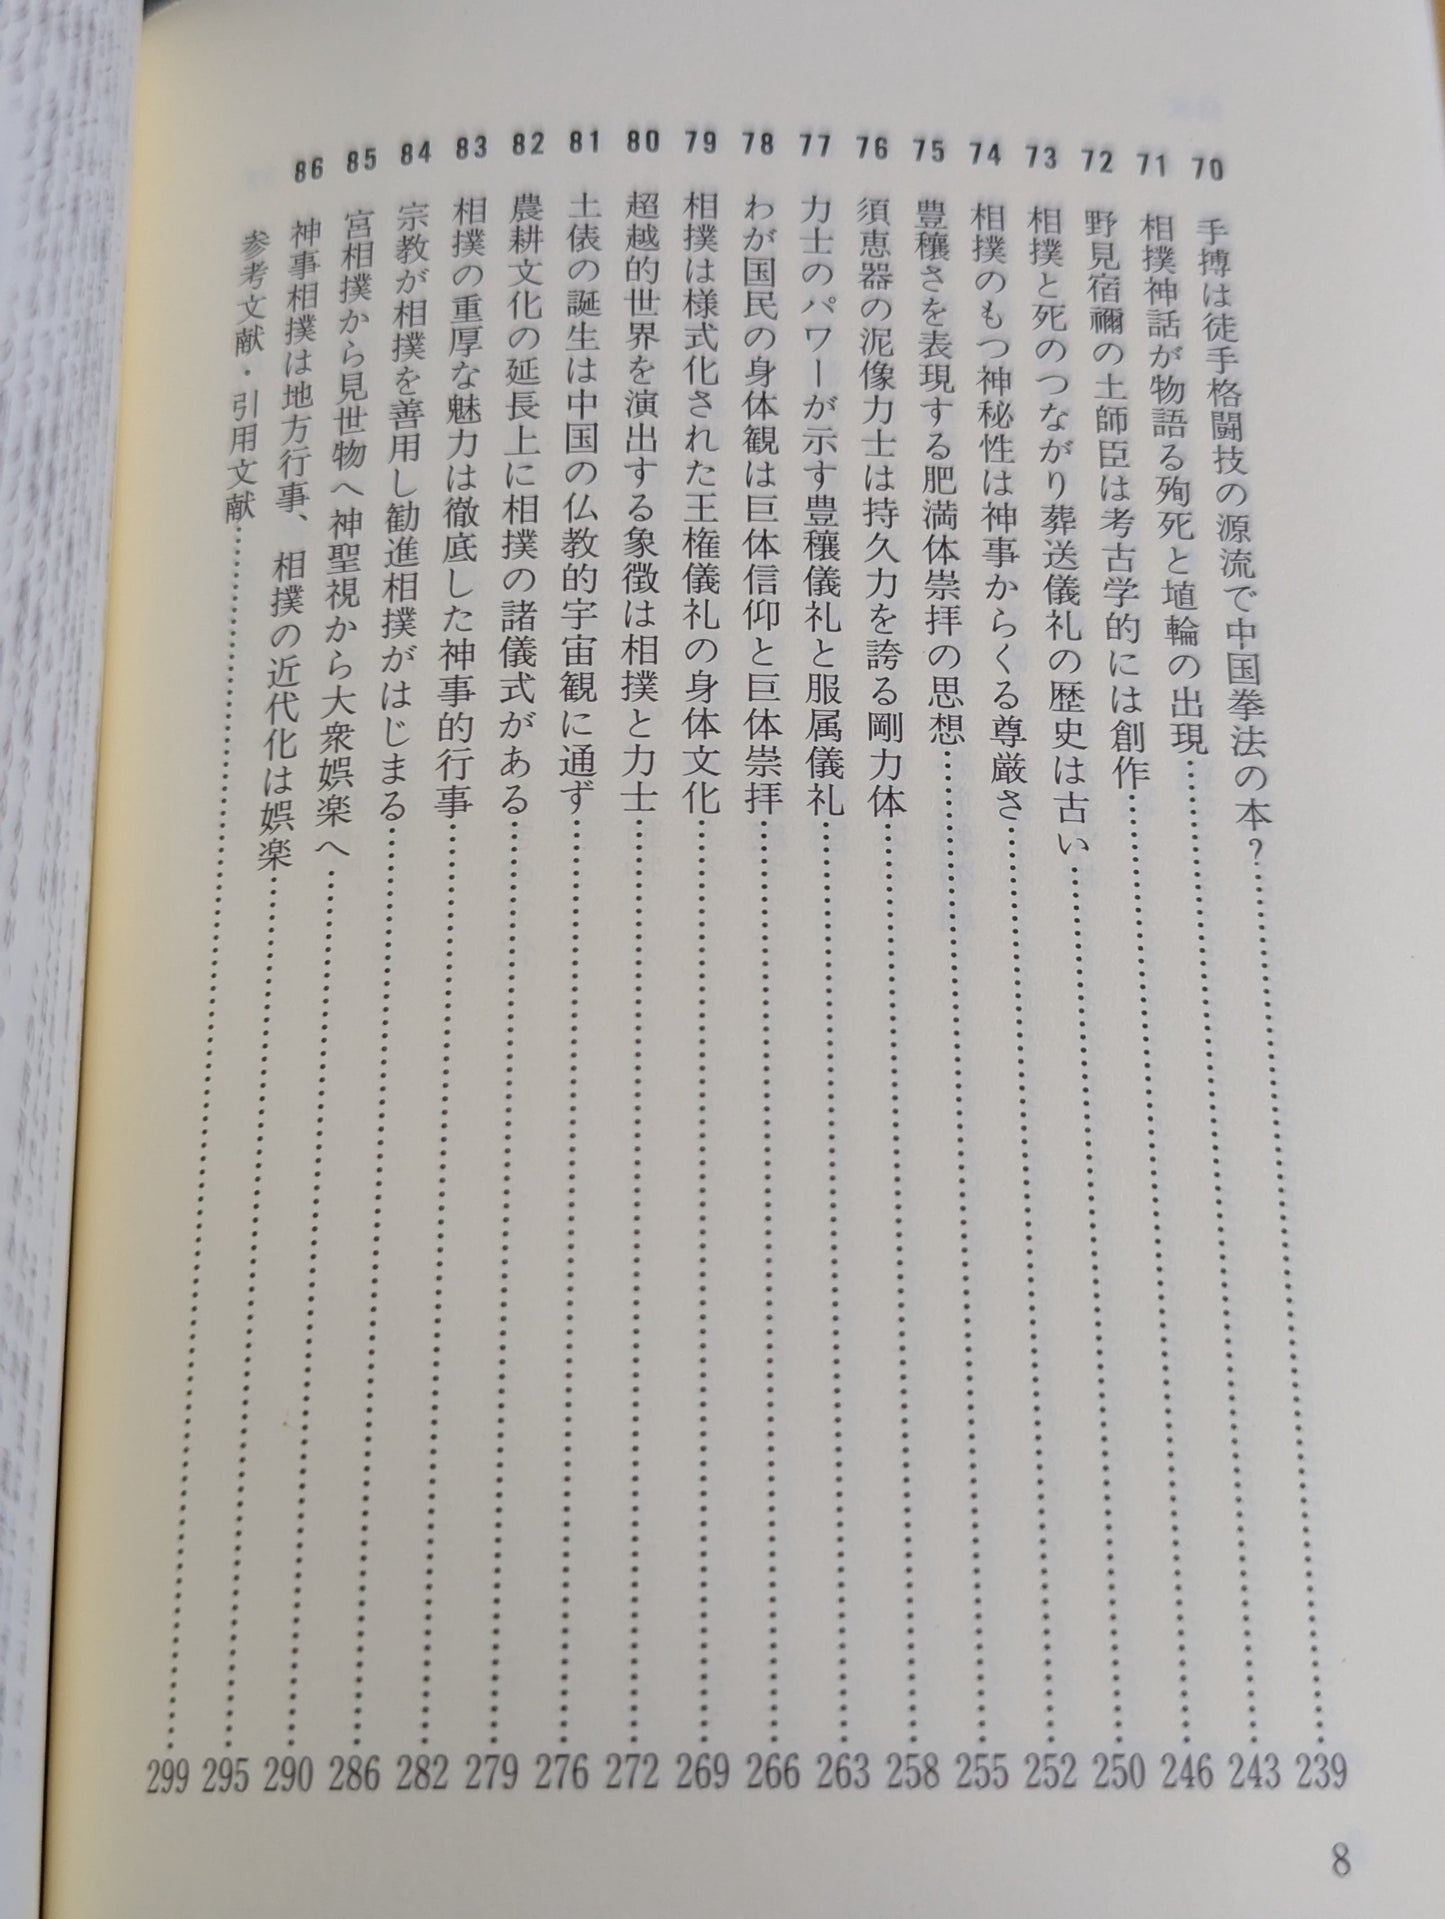 70 手搏は徒手格闘技の源流で中国拳法の本？……239
71 相撲神話が物語る殉死と埴輪の出現……243
72 野見宿禰の土師臣は考古学的には創作……246
73 相撲と死のつながり葬送儀礼の歴史は古い……250
74 相撲のもつ神秘性は神事からくる尊厳さ……252
75 豊穣さを表現する肥満体崇拝の思想……255
76 須恵器の泥像力士は持久力を誇る剛力体……258
77 力士のパワーが示す豊穣儀礼と服属儀礼……263
78 わが国民の身体観は巨体信仰と巨体崇拝……266
79 相撲は様式化された王権儀礼の身体文化……269
80 超越的世界を演出する象徴は相撲と力士……272
81 土俵の誕生は中国の仏教的宇宙観に通ず……276
82 農耕文化の延長上に相撲の諸儀式がある……279
83 相撲の重厚な魅力は徹底した神事的行事……282
84 宗教が相撲を善用し勧進相撲がはじまる……286
85 宮相撲から見世物へ神聖視から大衆娯楽へ……290
86 神事相撲は地方行事、相撲の近代化は娯楽……295
参考文献・引用文献……299
8